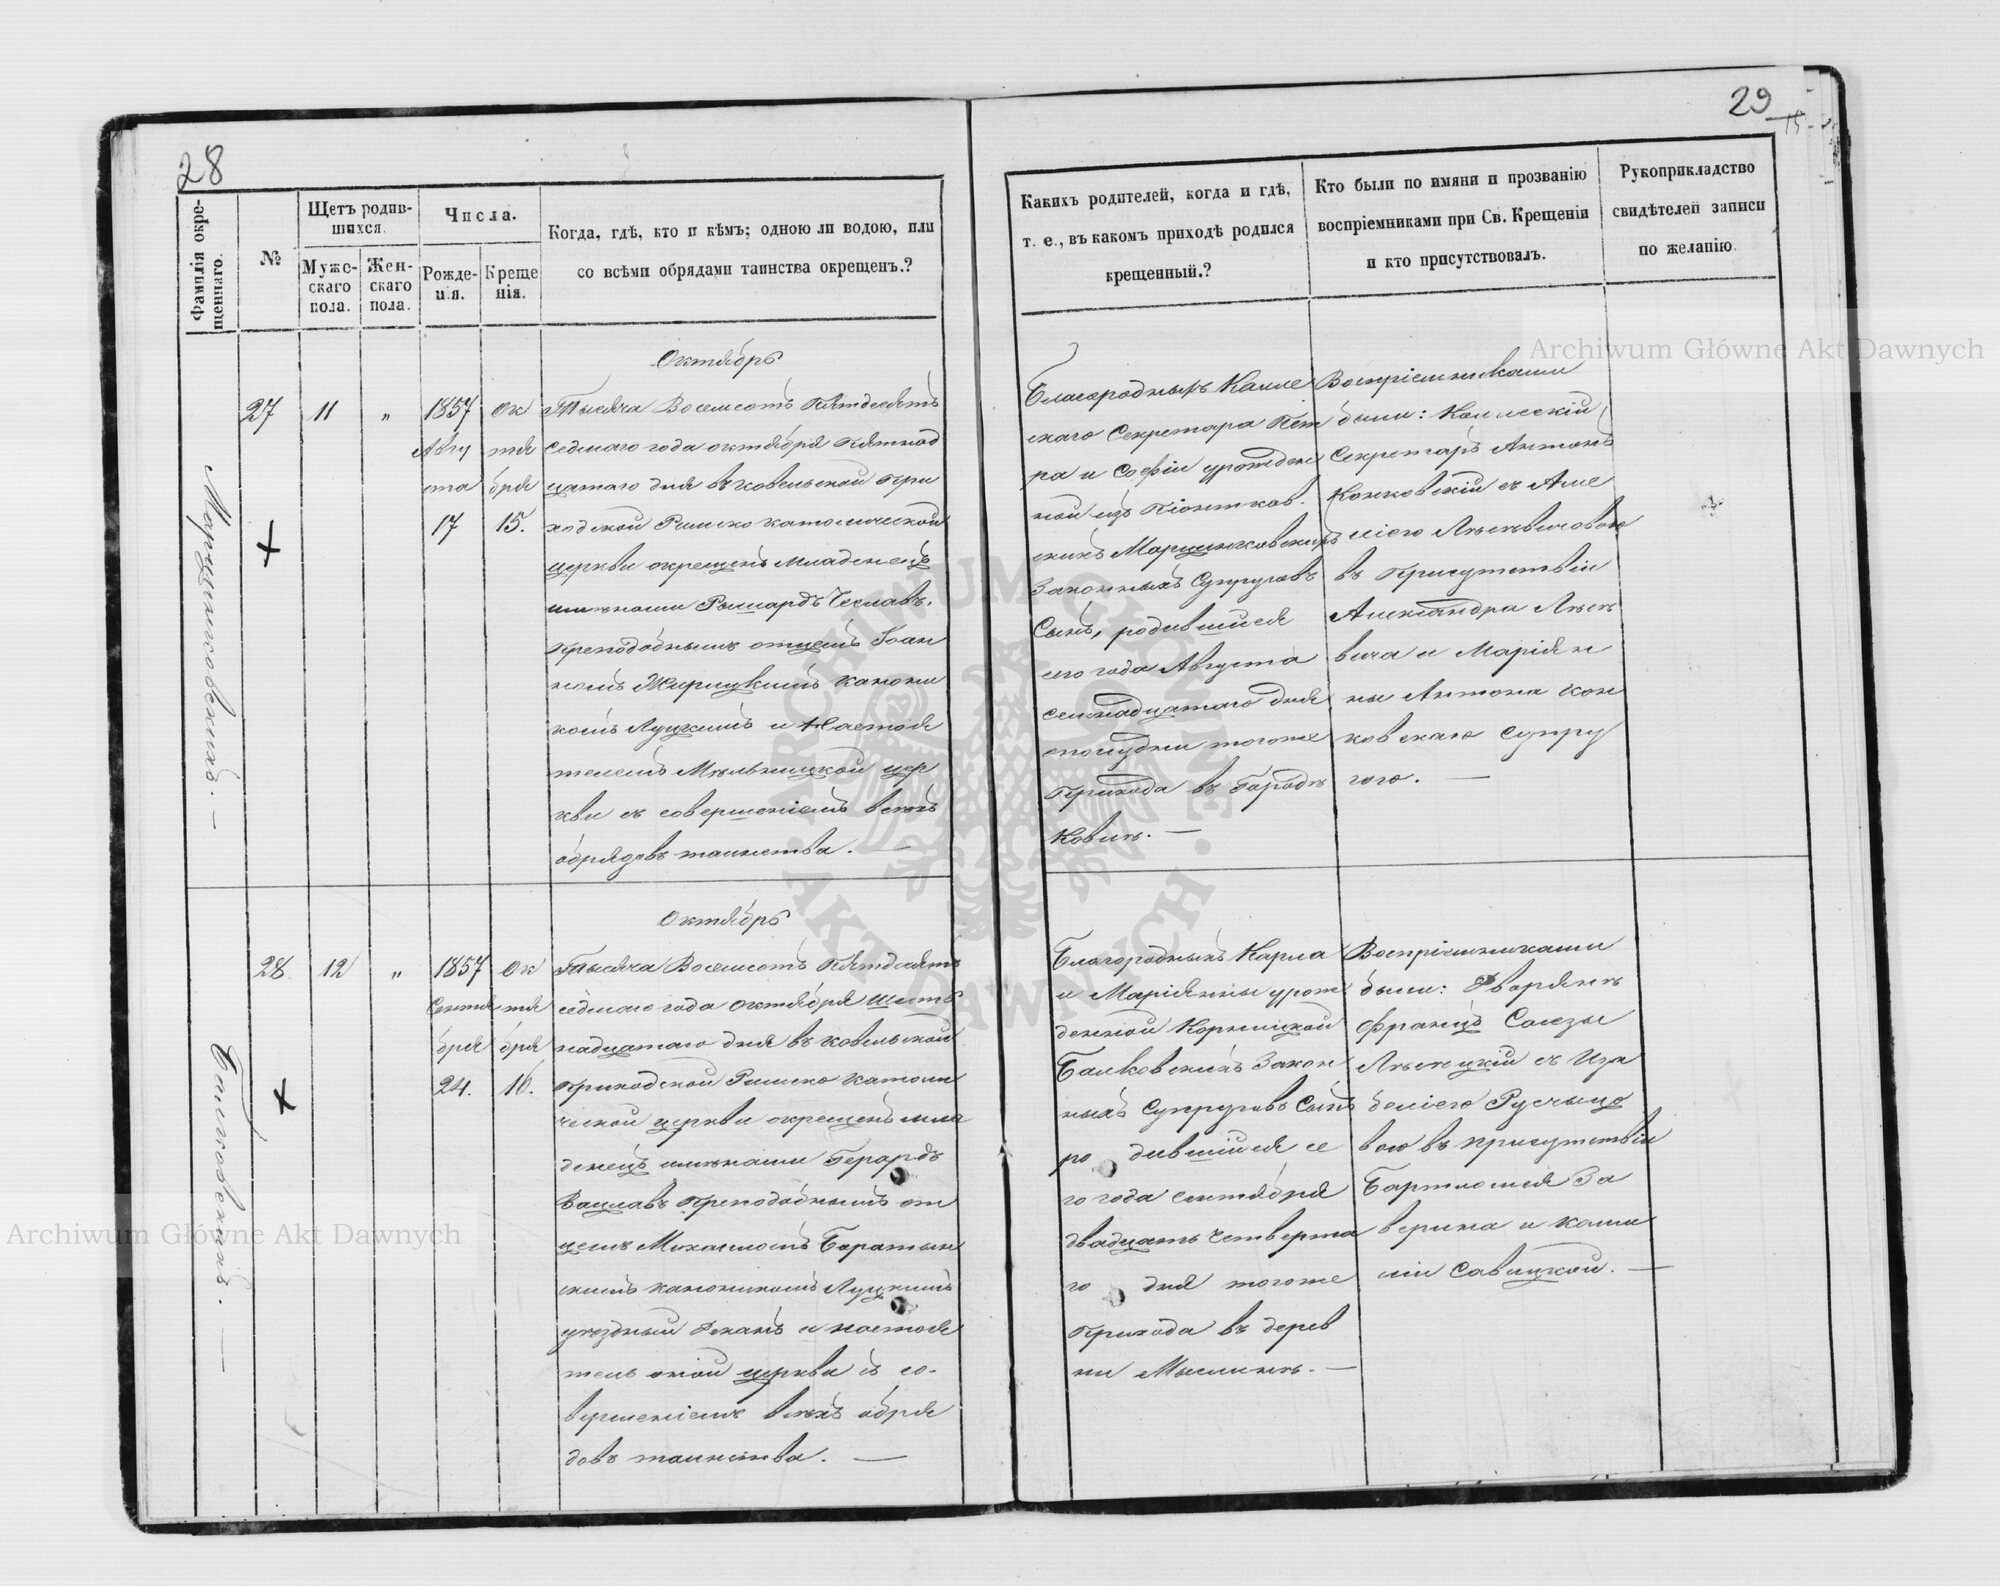 28
Фамилія окре-
щеннаго.
№
Щетъ родив-
шихся.
Мужс-
скаго
пола.
Жен-
скаго
пола.
Числа.
Рожде-
нія.
Креще
нія.
Когда, гдѣ, кто и кѣмъ; одною ли водою, или
со всѣми обрядами таинства окрещенъ.?
Октябрь
Марцинковскихъ. —
27
11
"
1857
Авгу
ста
17
Ок
тя
бря
15.
Тысяча Восемсотъ Пятдесятъ
седмаго года октября Пятнад
цатаго дня въ Ковельской При
ходской Римско католической
церкви окрещенъ младенецъ
именами Рышардъ Чеславъ,
преподобнымъ отцемъ Іоан
номъ Жирицкимъ канони
комъ Луцкимъ и Настоя
телемъ Мѣльницкой цер
кви съ совершеніемъ всѣхъ
обрядовъ таинства. —
Октябрь
Балковскихъ. —
28
12
"
1857
Сентя
бря
24.
Ок
тя
бря
16.
Тысяча Восемсотъ Пятдесятъ
седмаго года Октября шест
надцатаго дня въ Ковельской
Приходской Римско Католи
ческой церкви окрещенъ мла
денецъ именами Герардъ
Вацлавъ Преподобнымъ от
цемъ Михаиломъ Баратын
скимъ каноникомъ Луцкимъ
уѣздный Деканъ и настоя
тель оной церкви съ со-
вершеніемъ всѣхъ обря
довъ таинства. —
29
15
Какихъ родителей, когда и гдѣ,
т. е., въ какомъ приходѣ родился
крещенный.?
Кто были по имяни и прозванію
воспріемниками при Св. Крещеніи
и кто присутствовалъ.
Рукоприкладство
свидѣтелей записи
по желанію.
Благородныхъ Колле
скаго Секретара Пет
ра и Софіи урожден
ной изъ Піонтков.
скихъ Марцинковскихъ
Законныхъ Супруговъ
Сынъ, родившійся
сего года Августа
семнадцатаго дня
тогоже
Прихода въ Городѣ
Ковлѣ. —
Воспріемниками
были: Коллескій
Секретарь Антонъ
Конковскій съ Аме
ліею
въ присутствіи
Александра
вича и Маріян
ны Антона Кон
ковскаго Супру
гою. —
Благородныхъ Карла
и Маріянны урож
денной Корницкой
Балковскихъ Закон
ныхъ Супруговъ Сынъ
родившійся се
го года Сентября
двадцать четверта
го дня тогоже
Прихода въ дерев
ни Мыслинѣ. —
Воспріемниками
были: Дворянѣ
Францъ
съ Иза
беліею
вою въ присутствіи
Бартломея За
верина и Ками
ліи Савицкой. —
Archiwum Główne Akt Dawnych
Archiwum Główne Akt Dawnych
ARCHIWUM GŁÓWNE
AKT DAWNYCH